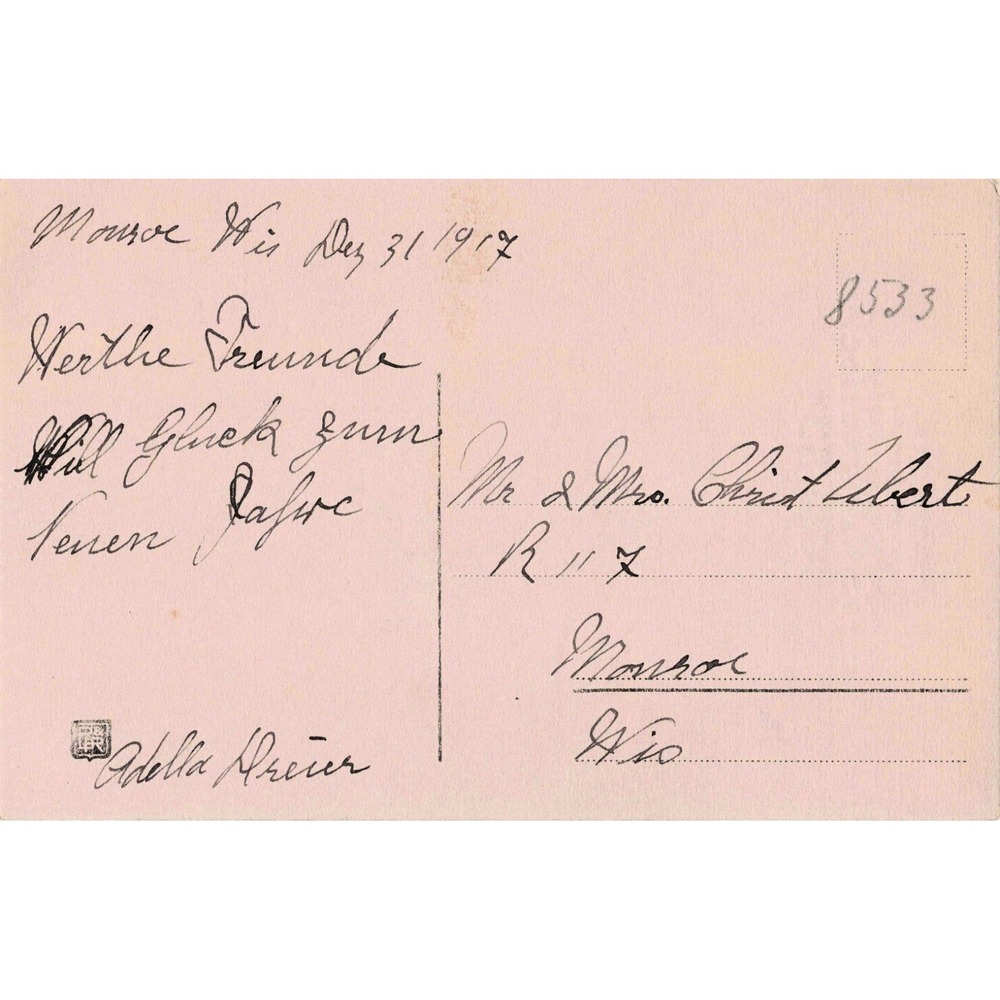 Monroe Wis Dez 31 1917
8533
Werthe Freunde
Will Gluck zum
Neuen Jahre
Adella Dreier
Mr & Mrs. Christ Zibert
R 11 7
Monroe
Wis